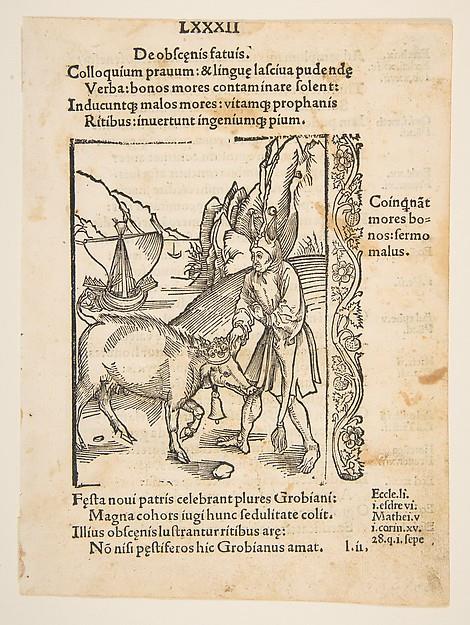 LXXXII
De obscęnis fatuis.
Colloquium prauum: & linguę lasciua pudendę
Verba: bonos mores contaminare solent:
Inducuntq; malos mores: vitamq; prophanis
Ritibus: inuertunt ingeniumq; pium.
Coinq̃nãt
mores bo=
nos: sermo
malus.
Fęsta noui patris celebrant plures Grobiani:
Magna cohors iugi hunc sedulitate colit.
Illius obscęnis lustrantur ritibus arę:
Nõ nisi pęstiferos hic Grobianus amat.
l. ii,
Eccle. li.
i. esdre vi.
Mathei. v
i. corin. xv.
28. q. i. sepe